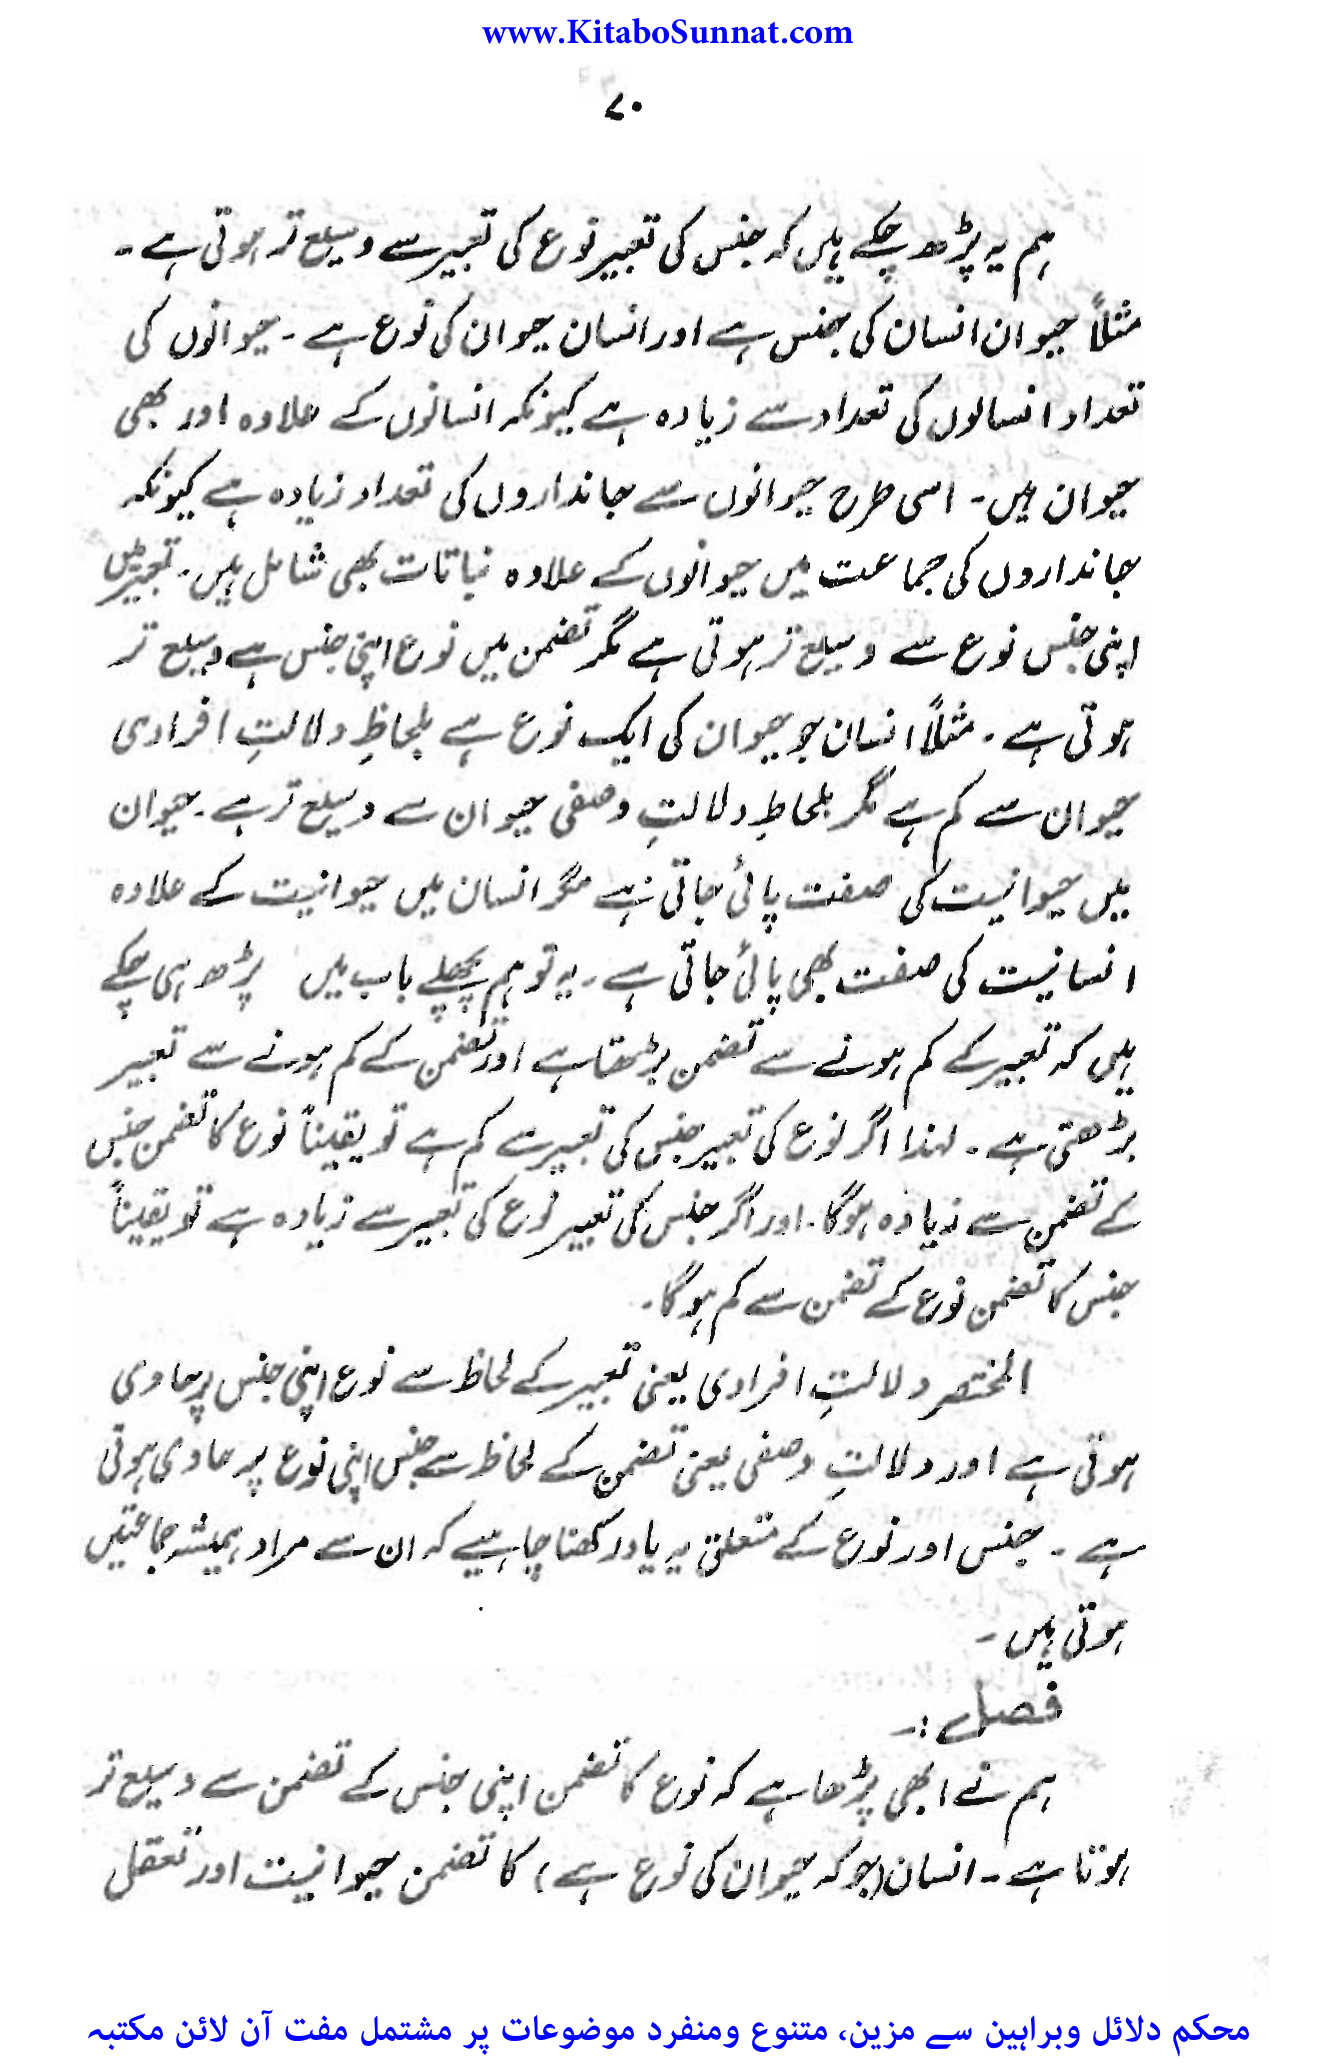 www.KitaboSunnat.com
۷۰
ہم یہ پڑھ چکے ہیں کہ جنس کی تعبیر نوع کی تعبیر سے وسیع تر ہوتی ہے ۔
مثلاً حیوان انسان کی جنس ہے اور انسان حیوان کی نوع ہے ۔ حیوانوں کی
تعداد انسانوں کی تعداد سے زیادہ ہے کیونکہ انسانوں کے علاوہ اور بھی
حیوان ہیں ۔ اسی طرح حیوانوں سے جانداروں کی تعداد زیادہ ہے کیونکہ
جانداروں کی جماعت میں حیوانوں کے علاوہ نباتات بھی شامل ہیں ۔ تعبیر میں
اپنی جنس نوع سے وسیع تر ہوتی ہے مگر تضمن میں نوع اپنی جنس سے وسیع تر
ہوتی ہے ۔ مثلاً انسان جو حیوان کی ایک نوع ہے بلحاظِ دلالتِ افرادی
حیوان سے کم ہے مگر بلحاظِ دلالتِ وصفی حیوان سے وسیع تر ہے ۔ حیوان
میں حیوانیت کی صفت پائی جاتی ہے مگر انسان میں حیوانیت کے علاوہ
انسانیت کی صفت بھی پائی جاتی ہے ۔ یہ تو ہم پچھلے باب میں پڑھ ہی چکے
ہیں کہ تعبیر کے کم ہونے سے تضمن بڑھتا ہے اور تضمن کے کم ہونے سے تعبیر
بڑھتی ہے ۔ لہذا اگر نوع کی تعبیر جنس کی تعبیر سے کم ہے تو یقیناً نوع کا تضمن جنس
کے تضمن سے زیادہ ہوگا ۔ اور اگر جنس کی تعبیر نوع کی تعبیر سے زیادہ ہے تو یقیناً
جنس کا تضمن نوع کے تضمن سے کم ہوگا ۔
المختصر دلالتِ افرادی یعنی تعبیر کے لحاظ سے نوع اپنی جنس پر حاوی
ہوتی ہے اور دلالتِ وصفی یعنی تضمن کے لحاظ سے جنس اپنی نوع پر حاوی ہوتی
ہے ۔ جنس اور نوع کے متعلق یہ یاد رکھنا چاہیے کہ ان سے مراد ہمیشہ جماعتیں
ہوتی ہیں ۔
فصل :۔
ہم نے ابھی پڑھا ہے کہ نوع کا تضمن اپنی جنس کے تضمن سے وسیع تر
ہوتا ہے ۔ انسان (جو کہ حیوان کی نوع ہے) کا تضمن حیوانیت اور تعقل
محکم دلائل وبراہین سے مزین، متنوع ومنفرد موضوعات پر مشتمل مفت آن لائن مکتبہ